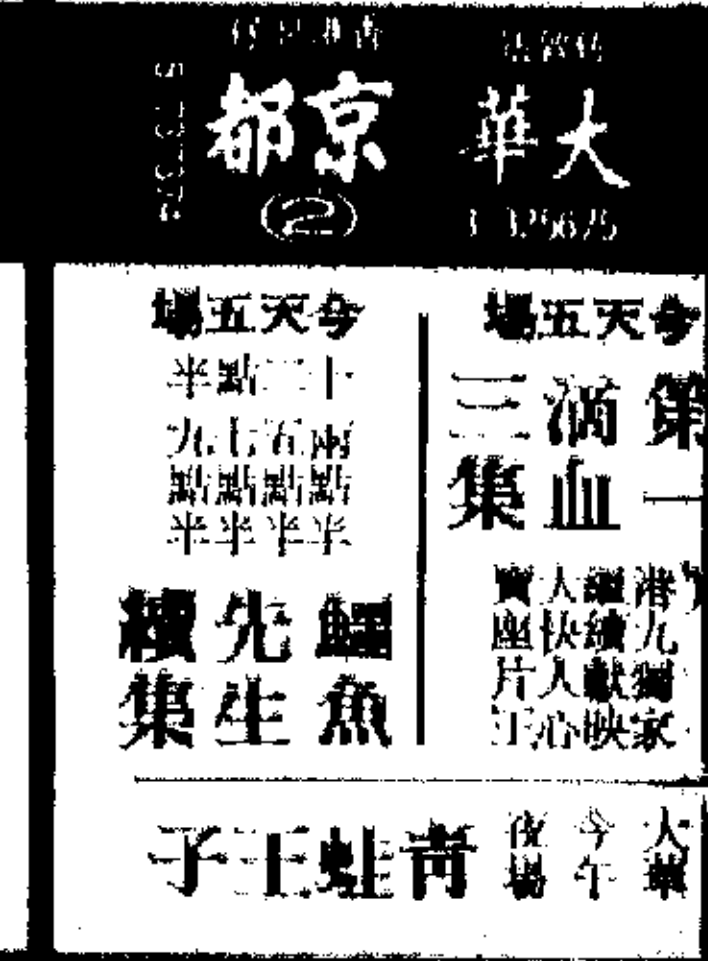 大華
今天五場
第一
滴血
三集
港九獨家
繼續獻映
大快人心
賣座片王
京都
②
今天五場
十二點半
兩點半
五點半
七點半
九點半
鱷魚
先生
續集
大華
今午
夜場
青蛙王子